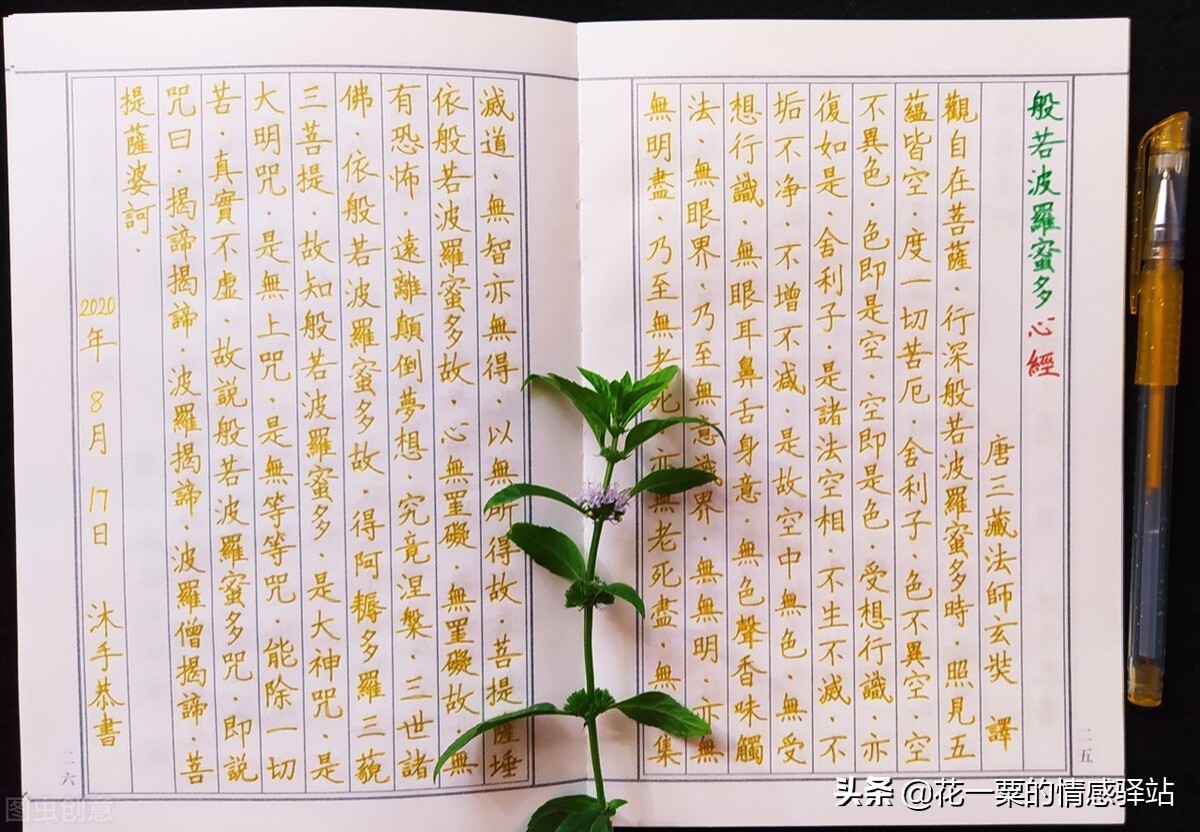 般若波羅蜜多心經
唐三藏法師玄奘 譯
觀自在菩薩．行深般若波羅蜜多時．照見五
蘊皆空．度一切苦厄．舍利子．色不異空．空
不異色．色即是空．空即是色．受想行識．亦
復如是．舍利子．是諸法空相．不生不滅．不
垢不净．不增不减．是故空中無色．無受
想行識．無眼耳鼻舌身意．無色聲香味觸
法．無眼界．乃至無意識界．無無明．亦無
無明盡．乃至無老死．亦無老死盡．無集
二五
滅道．無智亦無得．以無所得故．菩提薩埵
依般若波羅蜜多故．心無罣礙．無罣礙故．無
有恐怖．遠離顛倒夢想．究竟涅槃．三世諸
佛．依般若波羅蜜多故．得阿耨多羅三藐
三菩提．故知般若波羅蜜多．是大神咒．是
大明咒．是無上咒．是無等等咒．能除一切
苦．真實不虛．故説般若波羅蜜多咒．即説
咒曰．揭諦揭諦．波羅揭諦．波羅僧揭諦．菩
提薩婆訶．
2020年 8月 17日 沐手恭書
二六
图虫创意
头条 @花一粟的情感驿站